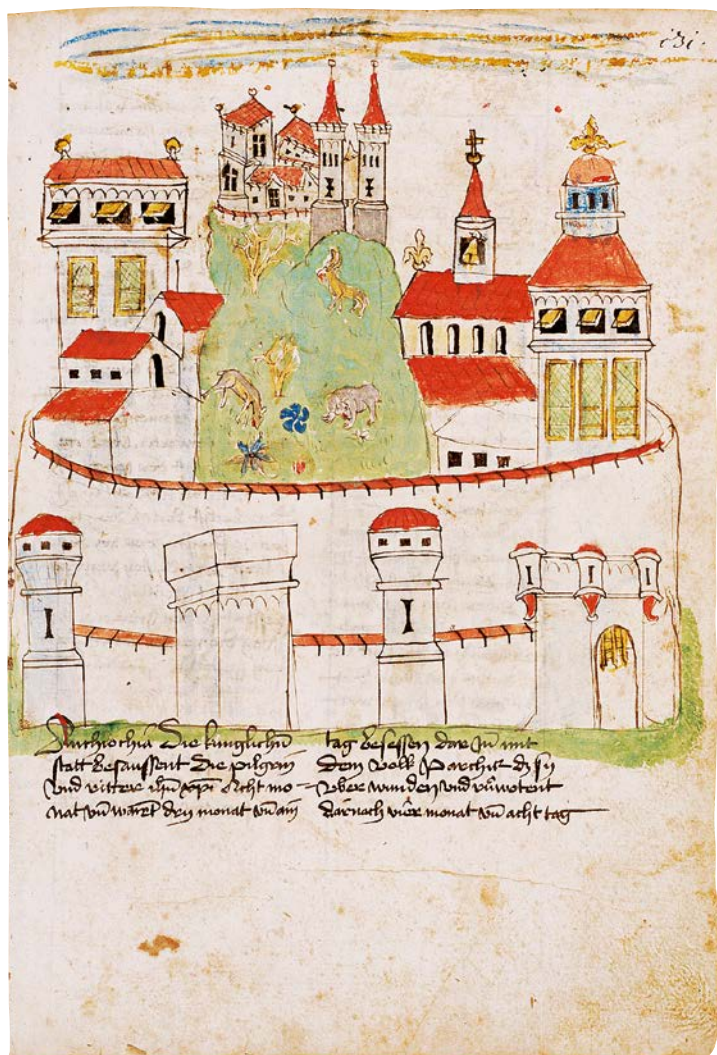 Anthiochia Die kunglichn
statt besaussent Die pilgrin
und ritter ihu xpi Acht mo-
nat vn waret dry monat vn ain
tag besessen dar In mit
dem volk
vber wunden vnd
darnach vier monat vn acht tag